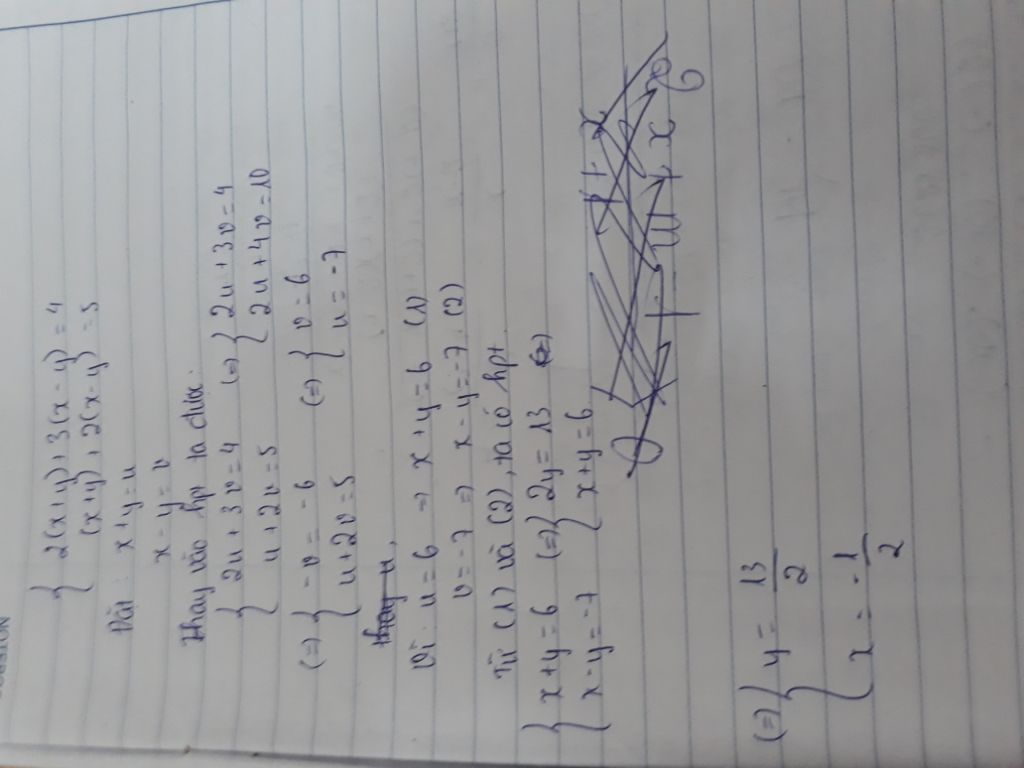 { 2(x+y)+3(x-y)=4
(x+y)+2(x-y)=5
Đặt: x+y=u
x-y=v
Thay vào hpt ta được:
{ 2u+3v=4 (=) { 2u+3v=4
u+2v=5 2u+4v=10
(=) { -v=-6 (=) { v=6
u+2v=5 u=-7
thay u,
Vì: u=6 => x+y=6 (1)
v=-7 => x-y=-7 (2)
Từ (1) và (2), ta có hpt
{ x+y=6 (=) { 2y=13 (=)
x-y=-7 x+y=6
(=) { y=13/2
x=-1/2